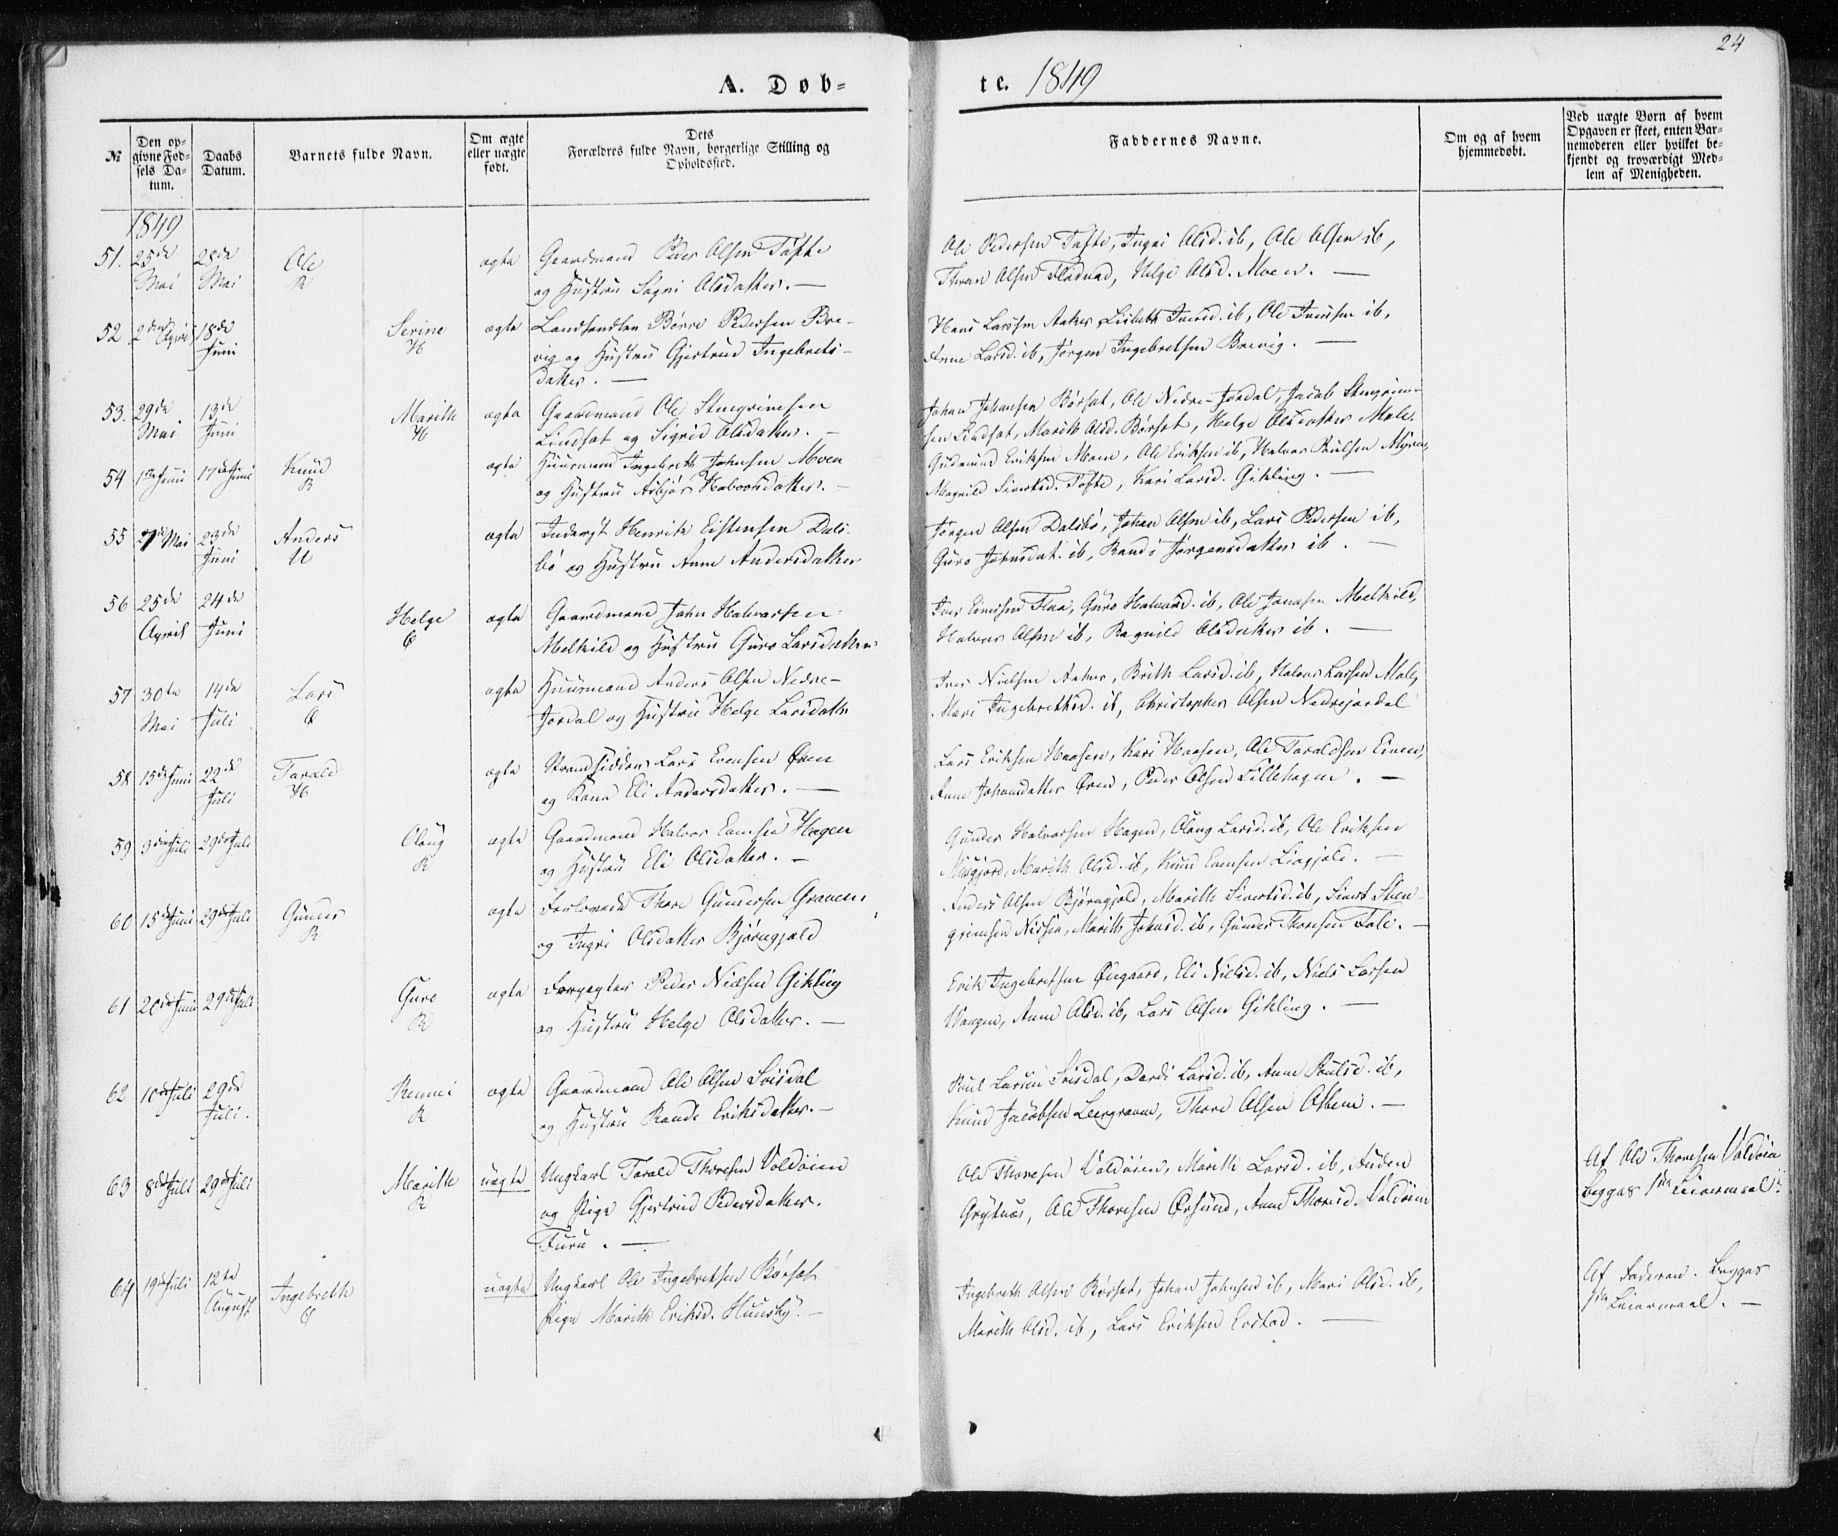 24
A. Døb= te. 1849
№
Den op=
givne Fød=
sels Da=
tum.
Daabs
Datum.
Barnets fulde Navn.
Om ægte
eller uægte
født.
Dets
Forældres fulde Navn, borgerlige Stilling og
Opholdssted.
Faddernes Navne.
Om og af hvem
hjemmedøbt.
Ved uægte Børn af hvem
Opgaven er skeet, enten Bar=
nemoderen eller hvilket be=
kjendt og troværdigt Med=
lem af Menigheden.
1849
51. 25de Mai 28de Mai Ole R ægte Gaardmand Peder Olsen Tofte
og Hustru Sigri Olsdatter. —
Ole Pedersen Tofte, Ingri Olsd. ib, Ole Olsen ib,
Olsen, Helge Olsd. Moen. —
52 2den April 18de Juni Serine H ægte Landhandler Børre Pedersen Bre-
vig og Hustru Gjertrud Ingebrets-
datter. —
Hans Larssen Aaker, Lisbeth ib, Ole ib,
Anne Larsd. ib, Jørgen Ingebretsen Brevig. —
53. 29de Mai 13de Juni Marith H ægte Gaardmand Ole Stengrimsen
Lindset og Sigrid Olsdatter. —
Johan Johansen Børset, Ole Nedre-Jordal, Jacob Stengrim-
sen Lindset, Marith Olsd. Børset, Helge Olsdatter Mele.
54 1ste Juni 17de Juni Knud R ægte Huusmand Ingebreth Johnsen Moen
og Hustru Asbjør Halvorsdatter. —
Gudmund Eriksen Moen, Ole Eriksen ib, Halvor Poulsen Myren,
Magnild Sivertsd. Tofte, Kari Larsd. Gikling. —
55 Mai 23de Juni Anders U ægte Inderst Henrik Eistensen Dals-
bø og Hustru Anne Andersdatter
Jørgen Olsen Dalsbø, Johan Olsen ib, Lars Pedersen ib,
Guro Johnsdat. ib, Randi Jørgensdatter ib. —
56 25de April 24de Juni Helge Ø ægte Gaardmand John Halvorsen
Melkild og Hustru Guro Larsdatter
Iver Flaa, Guro Halvorsd. ib, Ole Jonsen Melkild,
Halvor Olsen ib, Ragnild Olsdatter ib. —
57 30te Mai 14de Juli Lars Ø ægte Huusmand Anders Olsen Nedre-
Jordal og Hustru Helge Larsdattr
Iver Nielsen Aaker, Brith Larsd. ib, Halvor Larsen Mele,
Mari Ingebrethsd. ib, Christopher Olsen Nedrejordal
58 15de Juni 22de Juli Tarald H ægte Strandsidder Lars Evensen Øren
og Kone Eli Andersdatter. —
Lars Eriksen Haasen, Kari Haasen, Ole Taraldsen,
Anne Johansdatter Øren, Peder Olsen Lillehagen. —
59 3die Juli 29de Juli Olaug R ægte Gaardmand Halvor Evensen Hagen
og Hustru Eli Olsdatter. —
Gunder Halvorsen Hagen, Olaug Larsd. ib, Ole Eriksen
Musgjerd, Marith Olsd. ib, Knud Evensen. —
60 15de Juni 29de Juli Gunder R ægte Forlovede Thore Gundersen Graven
og Ingri Olsdatter Bjørngjeld
Anders Olsen Bjørngjeld, Marith Sivertsd. ib, Sivert Sten-
grimsen Nissen, Marith Johnsd. ib, Gunder Thoresen Fale. —
61 20de Juni 29de Juli Guro R ægte Forpagter Peder Nielsen Gikling
og Hustru Helge Olsdatter. —
Erik Ingebretsen Øregaard, Eli Nielsd. ib, Niels Larsen
Vangen, Anne Olsd. ib, Lars Olsen Gikling. —
62 10de Juli 29de Juli. Rennei R ægte Gaardmand Ole Olsen Frisdal
og Hustru Randi Eriksdatter. —
Poul Larsen Frisdal, Dordi Larsd. ib, Anne Poulsd. ib,
Knud Jacobsen Leergraven, Thore Olsen. —
63 8de Juli 29de Juli Marithe R uægte Ungkarl Tarald Thoresen Voldøien
og Pige Gjertrud Pedersdatter.
Furu. —
Ole Thoresen Voldøien, Marith Larsd. ib, Auden
Grytnes, Ole Thoresen Ørsund, Anne Thoresd. Voldøien
Af Ole Thoresen Voldøien
Begges 1ste Leiermaal
64 19de Juli 12te August Ingebreth Ø uægte Ungkarl Ole Ingebretsen Børset
Pige Marith Eriksd. Huusby. —
Ingebreth Olsen Børset, Johan Johnsen ib, Mari Olsd. ib,
Marith Olsd. ib, Lars Eriksen Erstad. —
Af Faderen. Begges
1ste Leiermaal. —